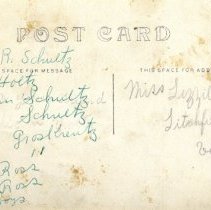 POST CARD
THIS SPACE FOR MESSAGE
THIS SPACE FOR ADD
R. Schultz
Holtz
Schultz
Schultz
Groskreutz
"
Ross
Ross
Miss Lizzie
Litchfi